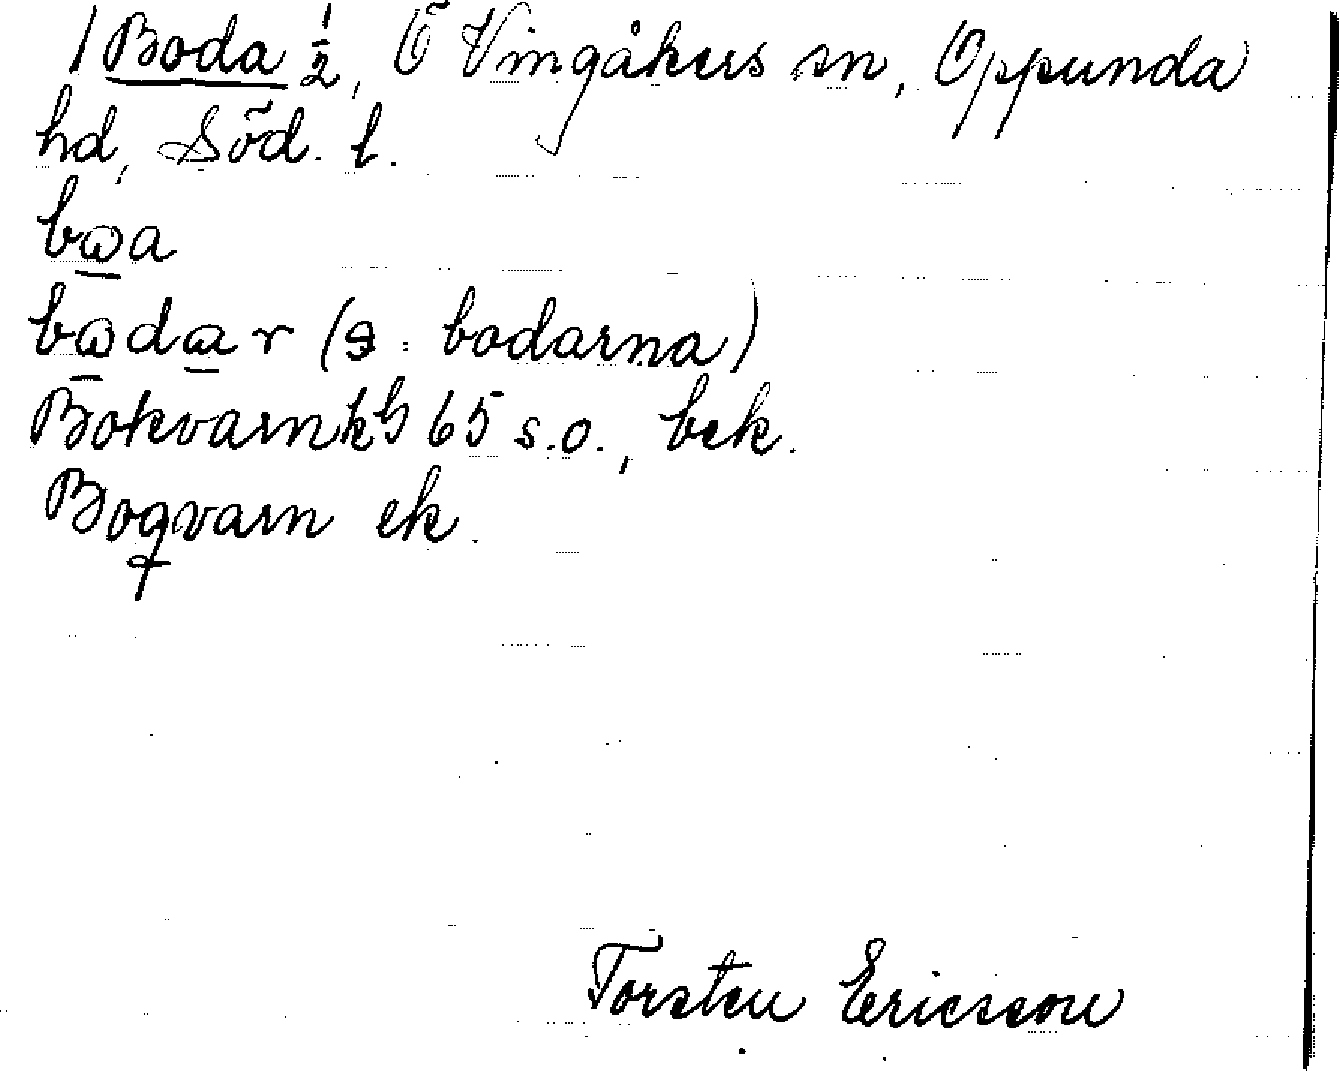 1 Boda ½, Ö Vingåkers sn, Oppunda
hd, Söd. l.
bωa
bωdar (ɘ: bodarna)
Bokvarn kb 65 s.o., bek.
Boqvarn ek.
Torsten Ericsson